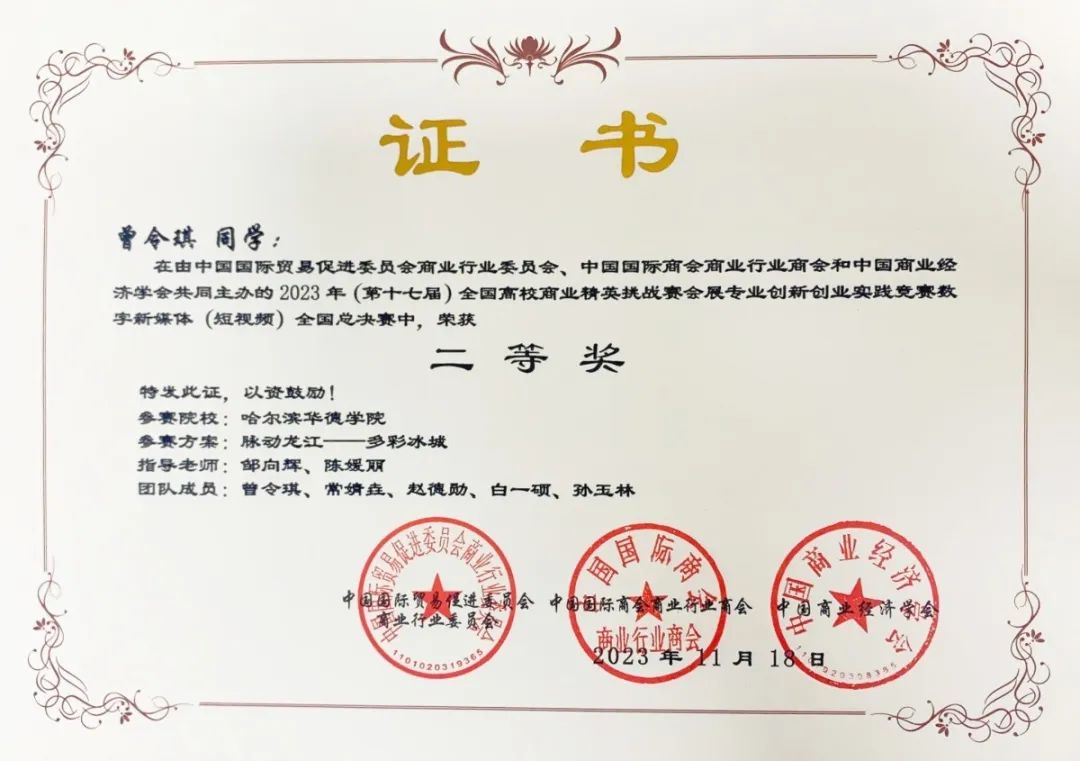 证书
曾令琪 同学：
在由中国国际贸易促进委员会商业行业委员会、中国国际商会商业行业商会和中国商业经
济学会共同主办的 2023 年（第十七届）全国高校商业精英挑战赛会展专业创新创业实践竞赛数
字新媒体（短视频）全国总决赛中，荣获
二等奖
特发此证，以资鼓励！
参赛院校：哈尔滨华德学院
参赛方案：脉动龙江——多彩冰城
指导老师：邹向辉、陈媛丽
团队成员：曾令琪、常婧垚、赵德勋、白一硕、孙玉林
中国国际贸易促进委员会商业行业委员会
1101020319365
中国国际商会
商业行业商会
中国商业经济学会
1101020308355
中国国际贸易促进委员会
商业行业委员会
中国国际商会商业行业商会
中国商业经济学会
2023 年 11 月 18 日